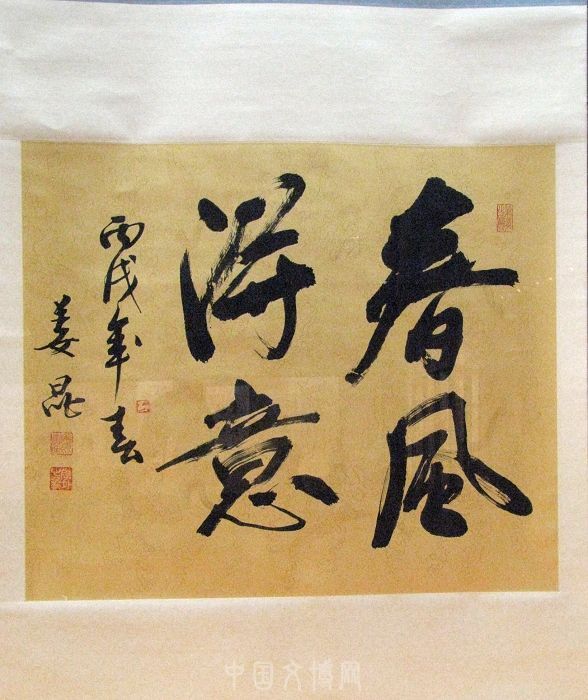 春風
得意
丙戌年春
姜昆
中国文博网